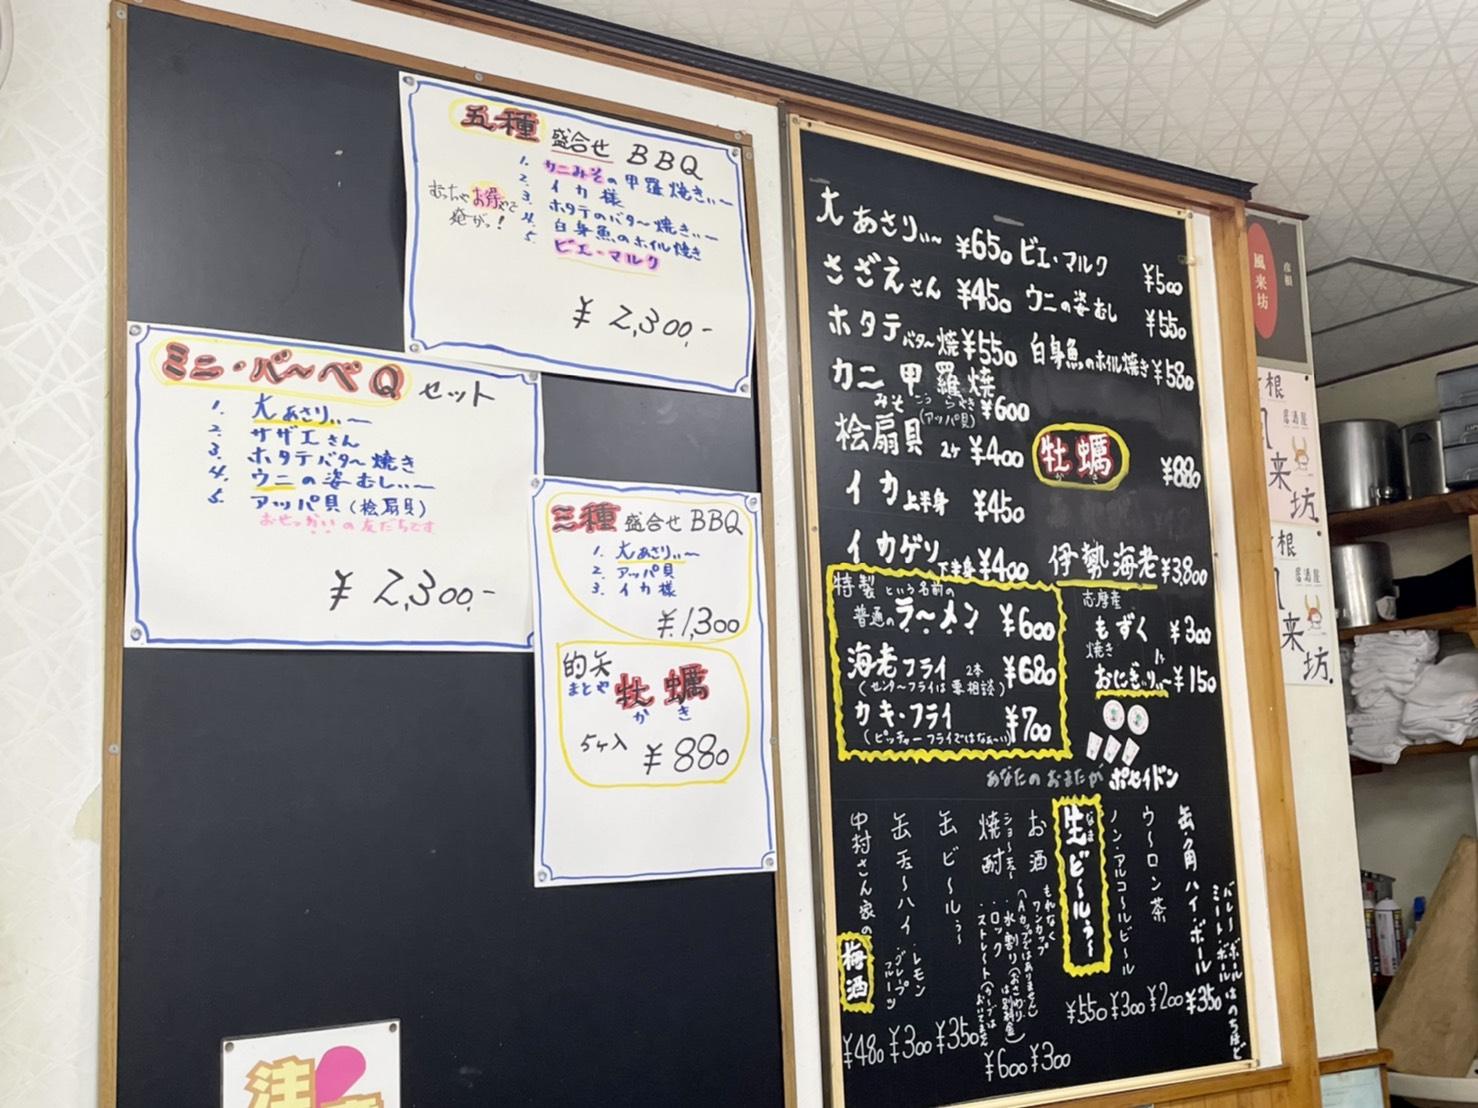 五種 盛合せ BBQ
1. カニみその甲羅焼きぃ〜
2. イカ様
3. ホタテのバタ〜焼きぃ〜
4. 白身魚のホイル焼き
5. ピエ・マルク
むっちゃお得やで
俺がっ!
¥2,300,-
ミニ・バ〜ベQ セット
1. 大あさりぃ〜
2. サザエさん
3. ホタテバタ〜焼き
4. ウニの姿むしぃ〜
5. アッパ貝(桧扇貝)
おせっかいの友だちです
¥2,300,-
三種 盛合せ BBQ
1. 大あさりぃ〜
2. アッパ貝
3. イカ様
¥1,300
的矢 牡蠣
まとや かき
5ヶ入 ¥880
大あさりぃ〜 ¥650
さざえさん ¥450
ホタテバタ〜焼 ¥550
カニ甲羅焼
みそ こうらやき ¥600
(アッパ貝)
桧扇貝 2ヶ ¥400
イカ上半身 ¥450
イカゲソ下半身 ¥400
ピエ・マルク ¥500
ウニの姿むし ¥550
白身魚のホイル焼き ¥580
牡蠣 ¥880
かき
伊勢海老 ¥3,800
特製という名前の
普通のラ〜メン ¥600
海老フライ 2本 ¥680
(センターフライは要相談)
カキ・フライ ¥700
(ピッチャーフライではなぁ〜い)
志摩産
もずく ¥300
焼き
おにぎぃりぃ〜 1ヶ ¥150
あなたのおまたが ポセイドン
バレーボールはのちほど
ミートボール
缶・角ハイ・ボール ¥350
ウ〜ロン茶 ¥200
ノン・アルコ〜ルビ〜ル ¥300
なま
生ビ〜ルぅ〜 ¥550
お酒 もれなくワンカップ
(Aカップではありません) ¥300
ショ〜チュ〜
焼酎 ・水割り(おさわりは別料金)
・ロック
・ストレート ¥600
缶ビ〜ルぅ〜 ¥350
缶チュ〜ハイ ・レモン
・グレープフルーツ ¥300
中村さん家の梅酒 ¥480
彦根
風来坊
根 居酒屋
来坊
根 居酒屋
来坊
注